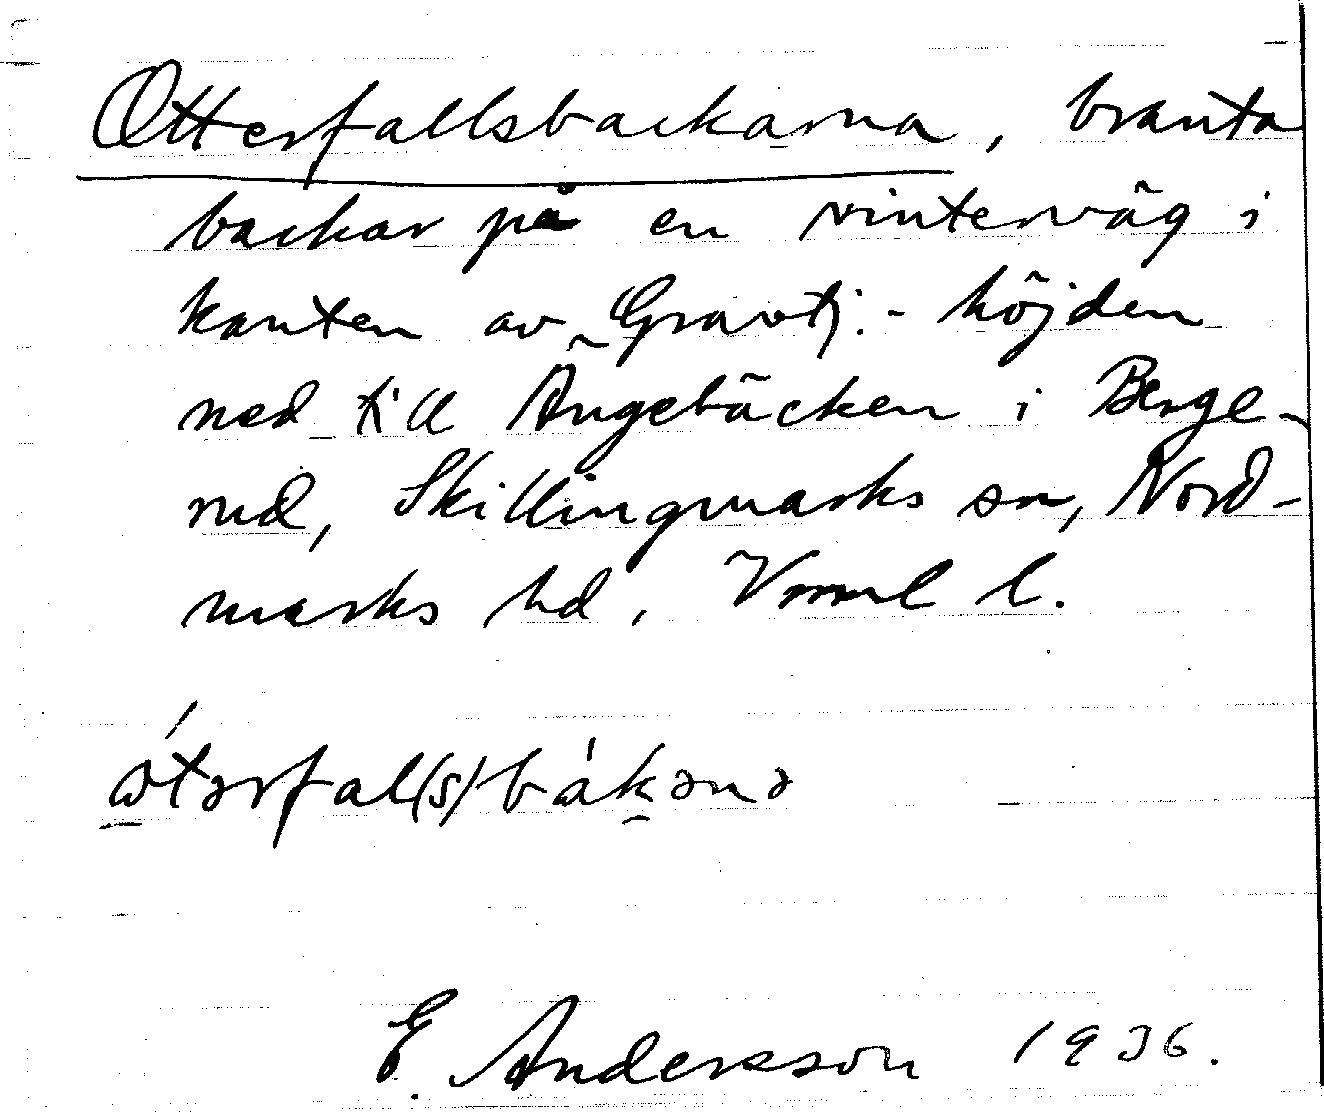 Otterfallsbackarna, branta
backar på en vinterväg i
kanten av Gravtj.-höjden
ned till Ängebäcken i Berge-
rud, Skillingmarks sn, Nord-
marks hd, Vrml l.
ὼtərfal(s)bákənə
E. Andersson 1936.